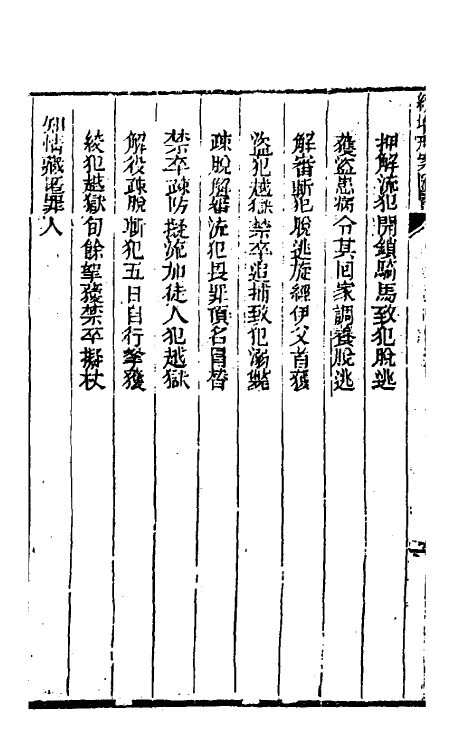 押解流犯開鎖騎馬致犯脫逃
獲盜患病令其回家調養脫逃
解審斬犯脫逃旋經伊父首獲
盜犯越獄禁卒追捕致犯溺斃
疎脫解審流犯畏罪頂名冒替
禁卒疎防擬流加徒人犯越獄
解役疎脫斬犯五日自行拏獲
絞犯越獄旬餘拏獲禁卒擬杖
知情藏匿罪人